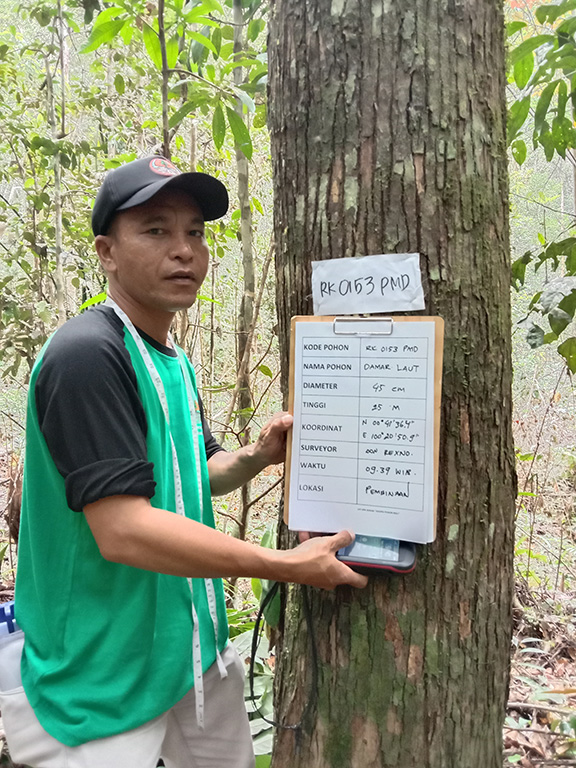 RK 0153 PMD
KODE POHON RK 0153 PMD
NAMA POHON DAMAR LAUT
DIAMETER 45 cm
TINGGI 25 M
KOORDINAT N 00°41'36.4"
E 100°20'50.9"
SURVEYOR
WAKTU 09.39 WIB.
LOKASI PEMBINAAN